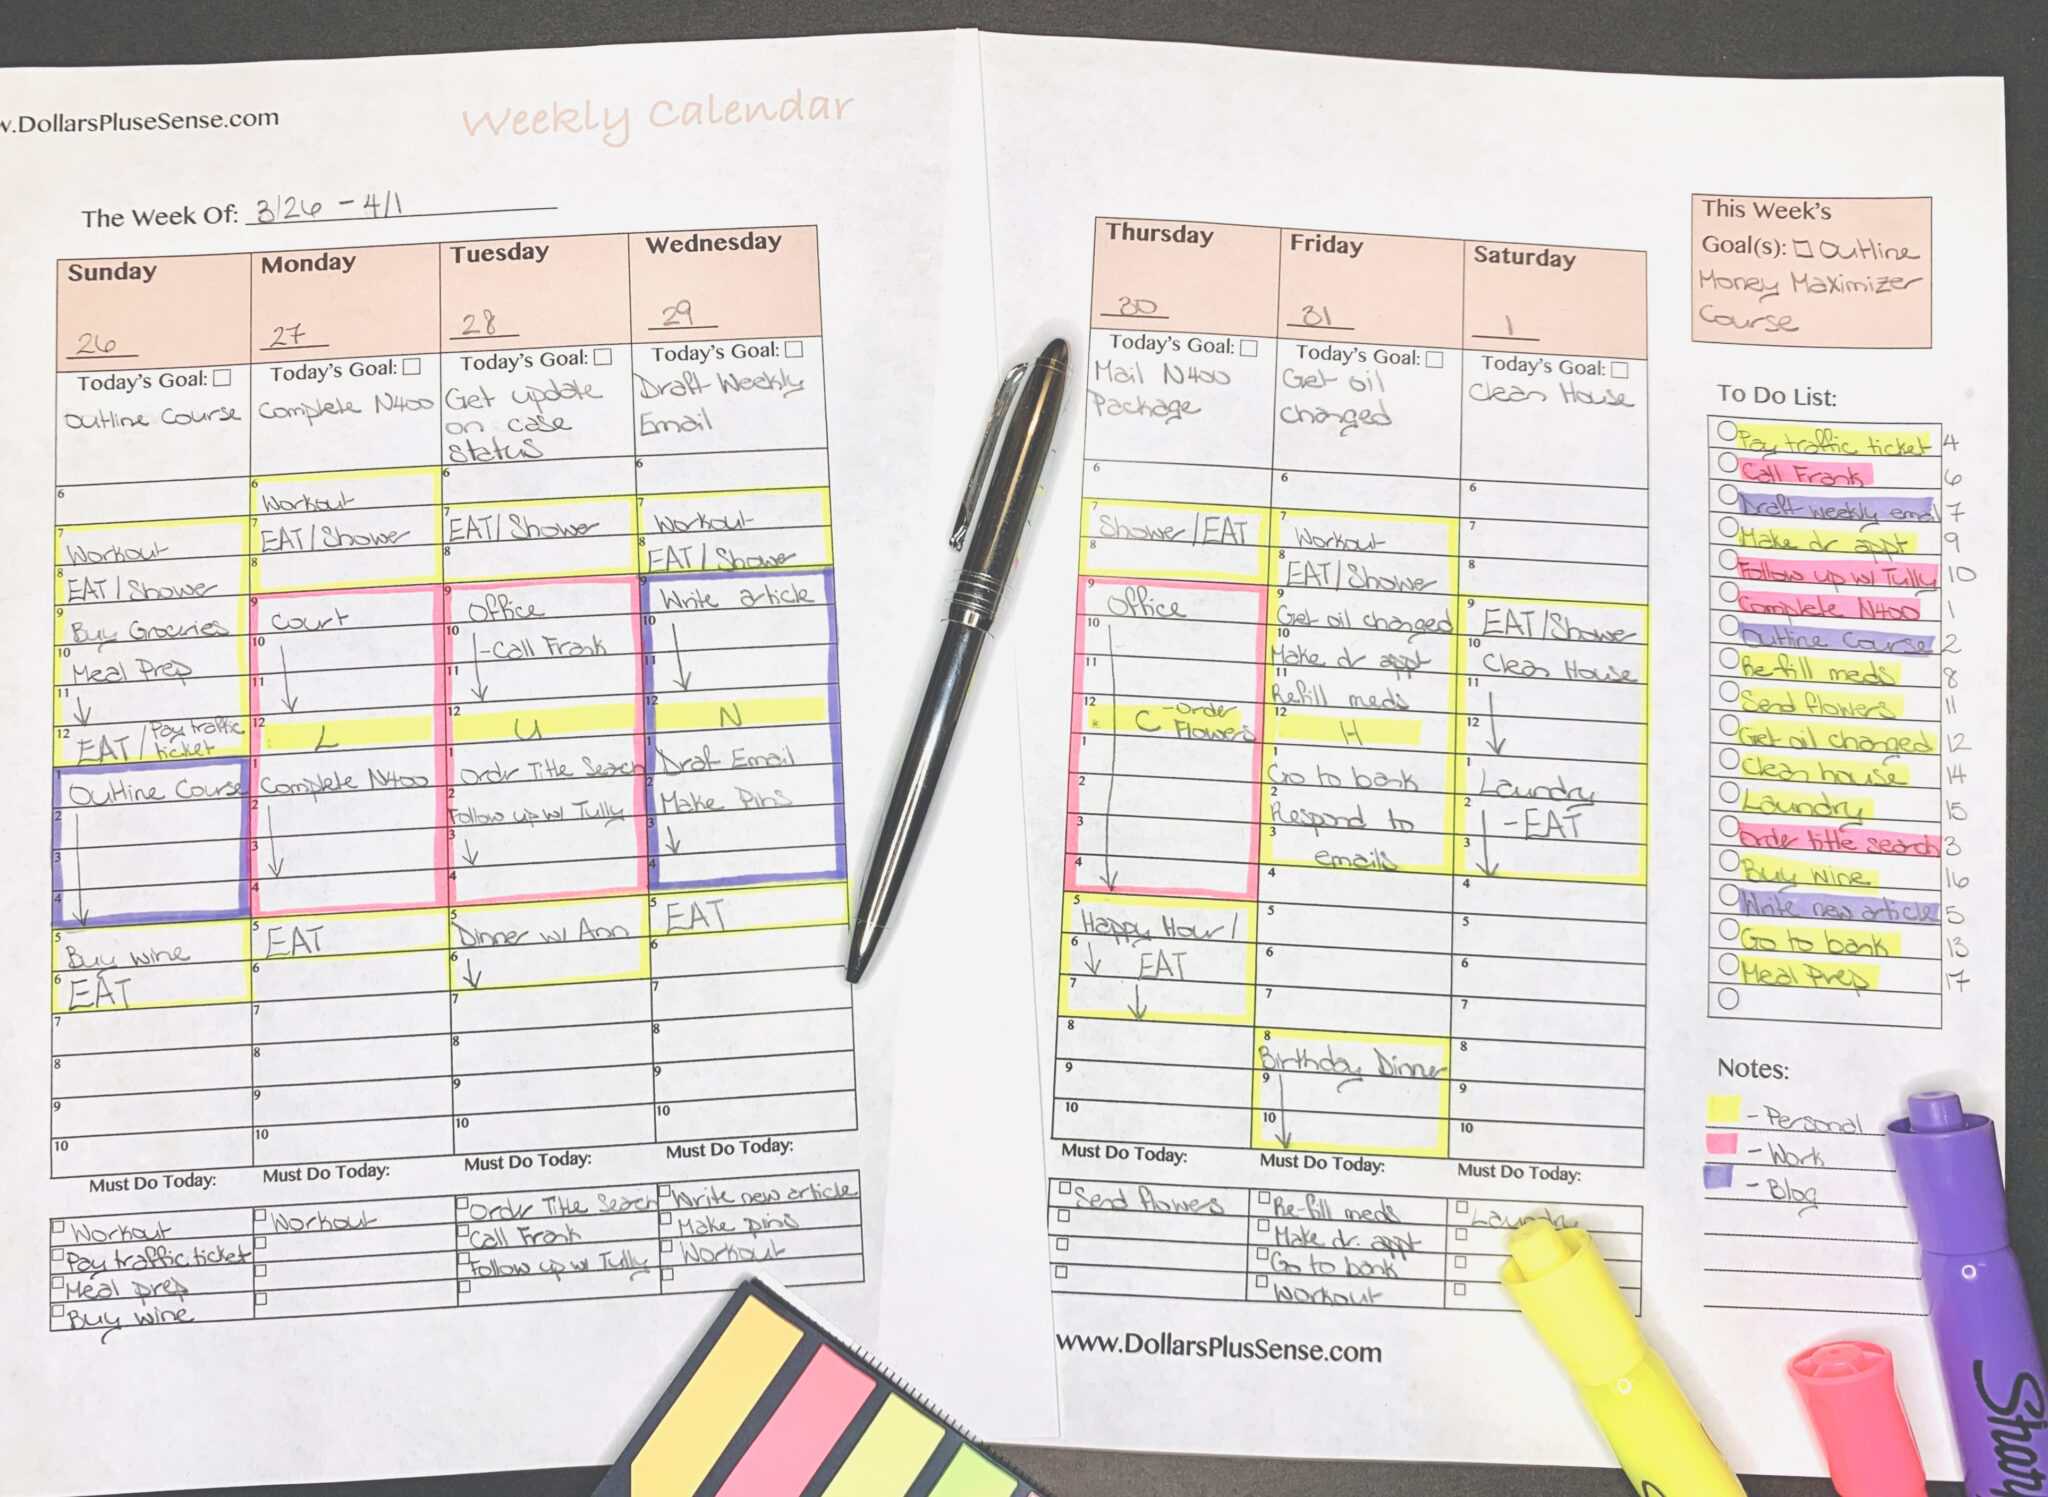 w.DollarsPluseSense.com
Weekly Calendar
The Week Of: 3/26 - 4/1
Sunday
26
Today's Goal:
Outline Course
6
7
Workout
8
EAT/Shower
9
Buy Groceries
10
Meal Prep
11
12
EAT/ Pay traffic
ticket
1
Outline Course
2
3
4
5
Buy wine
6
EAT
7
8
9
10
Must Do Today:
Workout
Pay traffic ticket
Meal prep
Buy wine
Monday
27
Today's Goal:
Complete N400
6
Workout
7
EAT/Shower
8
9
Court
10
11
12
L
1
Complete N400
2
3
4
5
EAT
6
7
8
9
10
Must Do Today:
Workout
Tuesday
28
Today's Goal:
Get update
on case
status
6
7
EAT/Shower
8
9
Office
10
-Call Frank
11
12
U
1
Order Title Search
2
Follow up w/ Tully
3
4
5
Dinner w/ Ann
6
7
8
9
10
Must Do Today:
Order Title Search
Call Frank
Follow up w/ Tully
Wednesday
29
Today's Goal:
Draft Weekly
Email
6
7
Workout
8
EAT/Shower
9
Write article
10
11
12
N
1
Draft Email
2
Make Pins
3
4
5
EAT
6
7
8
9
10
Must Do Today:
Write new article
Make pins
Workout
Thursday
30
Today's Goal:
Mail N400
Package
6
7
Shower/EAT
8
9
Office
10
11
12
C -Order
Flowers
1
2
3
4
5
Happy Hour/
6
EAT
7
8
9
10
Must Do Today:
Send flowers
Friday
31
Today's Goal:
Get oil
changed
6
7
Workout
8
EAT/Shower
9
Get oil changed
10
Make dr appt
11
Refill meds
12
H
1
Go to bank
2
Respond to
3
emails
4
5
6
7
8
Birthday Dinner
9
10
Must Do Today:
Re-fill meds
Make dr. appt
Go to bank
Workout
Saturday
1
Today's Goal:
Clean House
6
7
8
9
EAT/Shower
10
Clean House
11
12
1
Laundry
2
-EAT
3
4
5
6
7
8
9
10
Must Do Today:
Laundry
www.DollarsPlusSense.com
This Week's
Goal(s): Outline
Money Maximizer
Course
To Do List:
Pay traffic ticket 4
Call Frank 6
Draft weekly email 7
Make dr appt 9
Follow up w/ Tully 10
Complete N400 1
Outline Course 2
Re-fill meds 8
Send flowers 11
Get oil changed 12
Clean house 14
Laundry 15
Order title search 3
Buy wine 16
Write new article 5
Go to bank 13
Meal Prep 17
Notes:
- Personal
- Work
- Blog